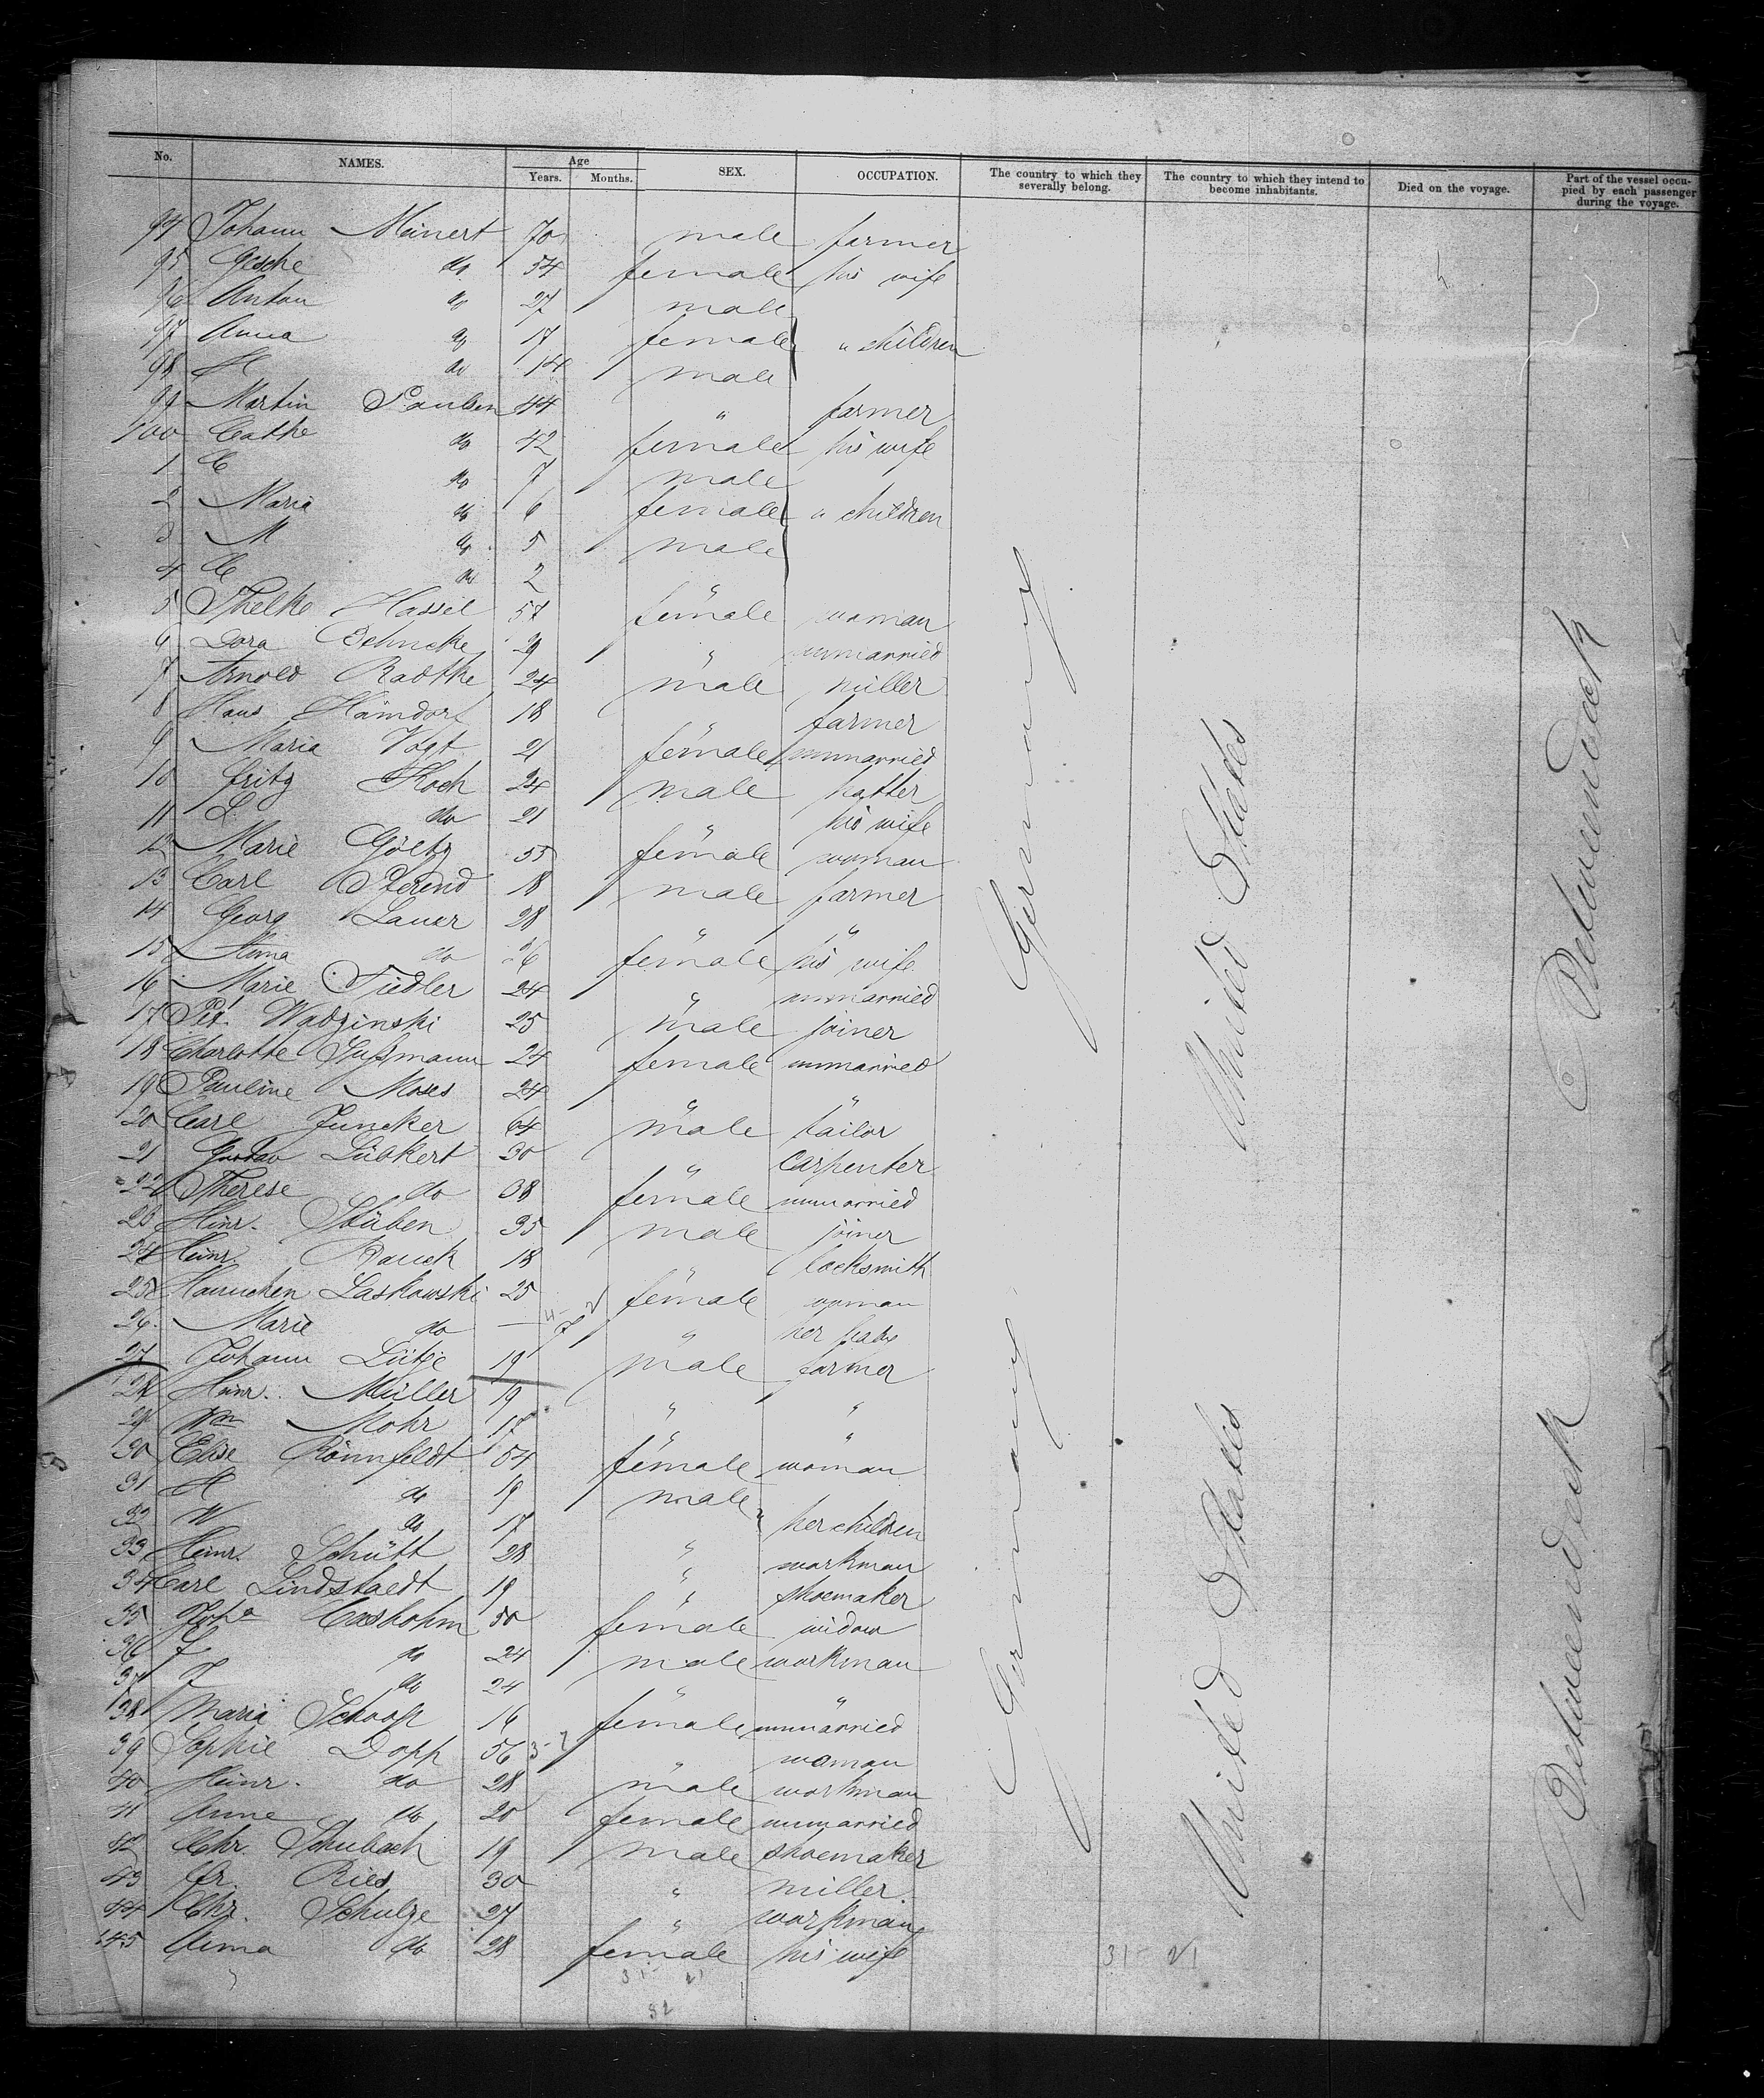 No. NAMES. Age Years. Months. SEX. OCCUPATION. The country to which they severally belong. The country to which they intend to become inhabitants. Died on the voyage. Part of the vessel occupied by each passenger during the voyage.
94 Johann Meinert 70 male farmer
95 Gesche do 54 female his wife
96 Anton do 27 male
97 Anna do 17 female " children
98 H do 14 male
99 Martin Paulsen 44 " farmer
100 Cathe do 42 female his wife
1 C do 7 male
2 Maria do 6 female " children
3 M do 5 male
4 C do 2 "
5 Thelke Hassel 57 female woman
6 Dora Behncke 29 " unmarried
7 Arnold Radtke 24 male miller
8 Hans Hamdorf 18 " farmer
9 Maria Vogt 21 female unmarried
10 Fritz Koch 24 male hatter
11 L. do 21 " his wife
12 Marie Göltz 55 female woman
13 Carl 18 male farmer
14 Georg Lauer 28 " "
15 do 26 female his wife
16 Marie Fiedler 24 " unmarried
17 Pet. Wadzinski 25 male joiner
18 Charlotte Sußmann 24 female unmarried
19 Pauline Moses 24 " "
20 Carl Juncker 64 male tailor
21 Gustav Lübkert 30 " carpenter
22 Therese do 38 female unmarried
23 Hinr. Stüben 35 male joiner
24 Heinr Rauch 18 " locksmith
25 Hannchen Laskowski 25 female woman
26 Marie do — " her baby
27 Johann Lütje 19 male farmer
28 Heinr. Müller 19 " "
29 Wm Mohr 17 " "
30 Elise Rönnfeldt 54 female woman
31 H do 19 male
32 W do 17 " her children
33 Heinr. Schütt 28 " workman
34 Carl Lindstaedt 19 " shoemaker
35 Joha Casbohm 50 female widow
36 J do 24 male workman
37 J do 24 " "
38 Maria Schoop 16 female unmarried
39 Sophie Dopp 56 " woman
40 Heinr. do 28 male workman
41 Anne do 20 female unmarried
42 Chr. Schubach 19 male shoemaker
43 Cr. Ries 30 " miller.
44 Chr. Schulze 27 " workman
145 Anna do 28 female his wife
Germany
United States
Betweendeck
Germany
United States
Betweendeck